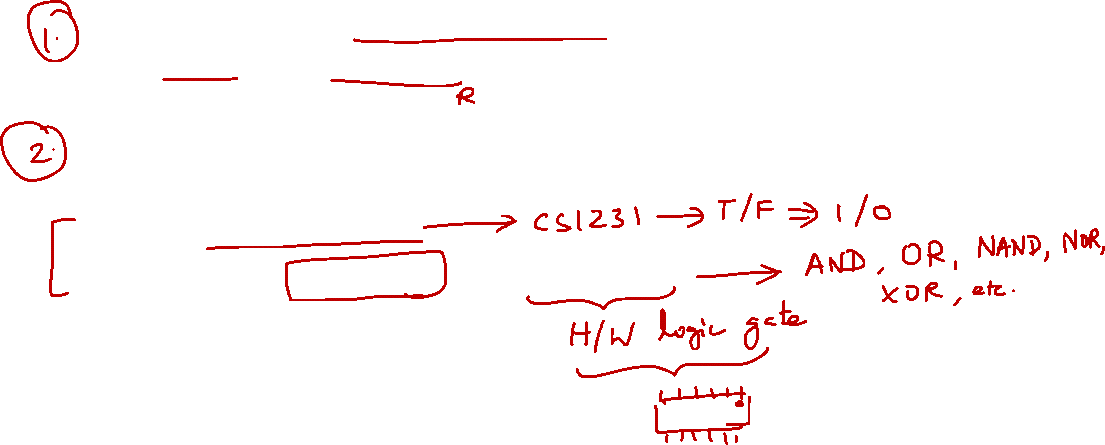 1.
R
2.
CS1231 → T/F ⇒ 1/0
→ AND, OR, NAND, NOR,
XOR, etc.
H/W logic gate